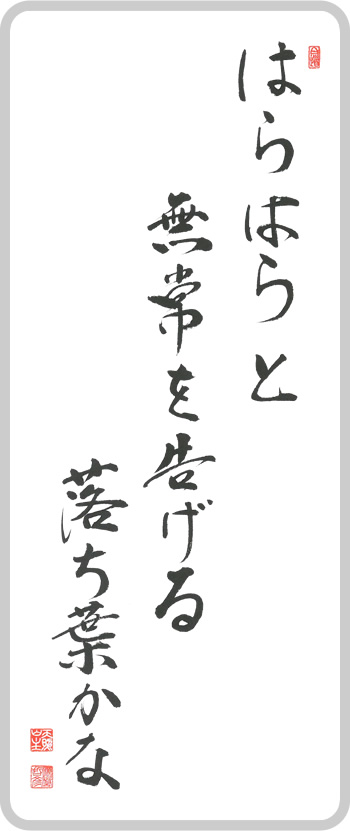 はらはらと
無常を告げる
落ち葉かな